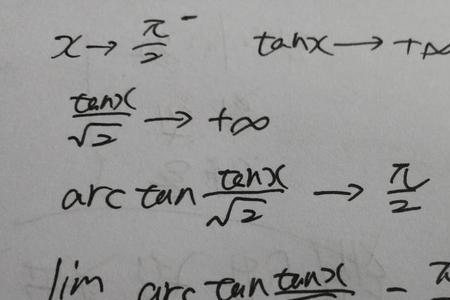 x → π/2⁻ tanx → +∞
tanx/√2 → +∞
arc tan tanx/√2 → π/2
lim arc tan tanx